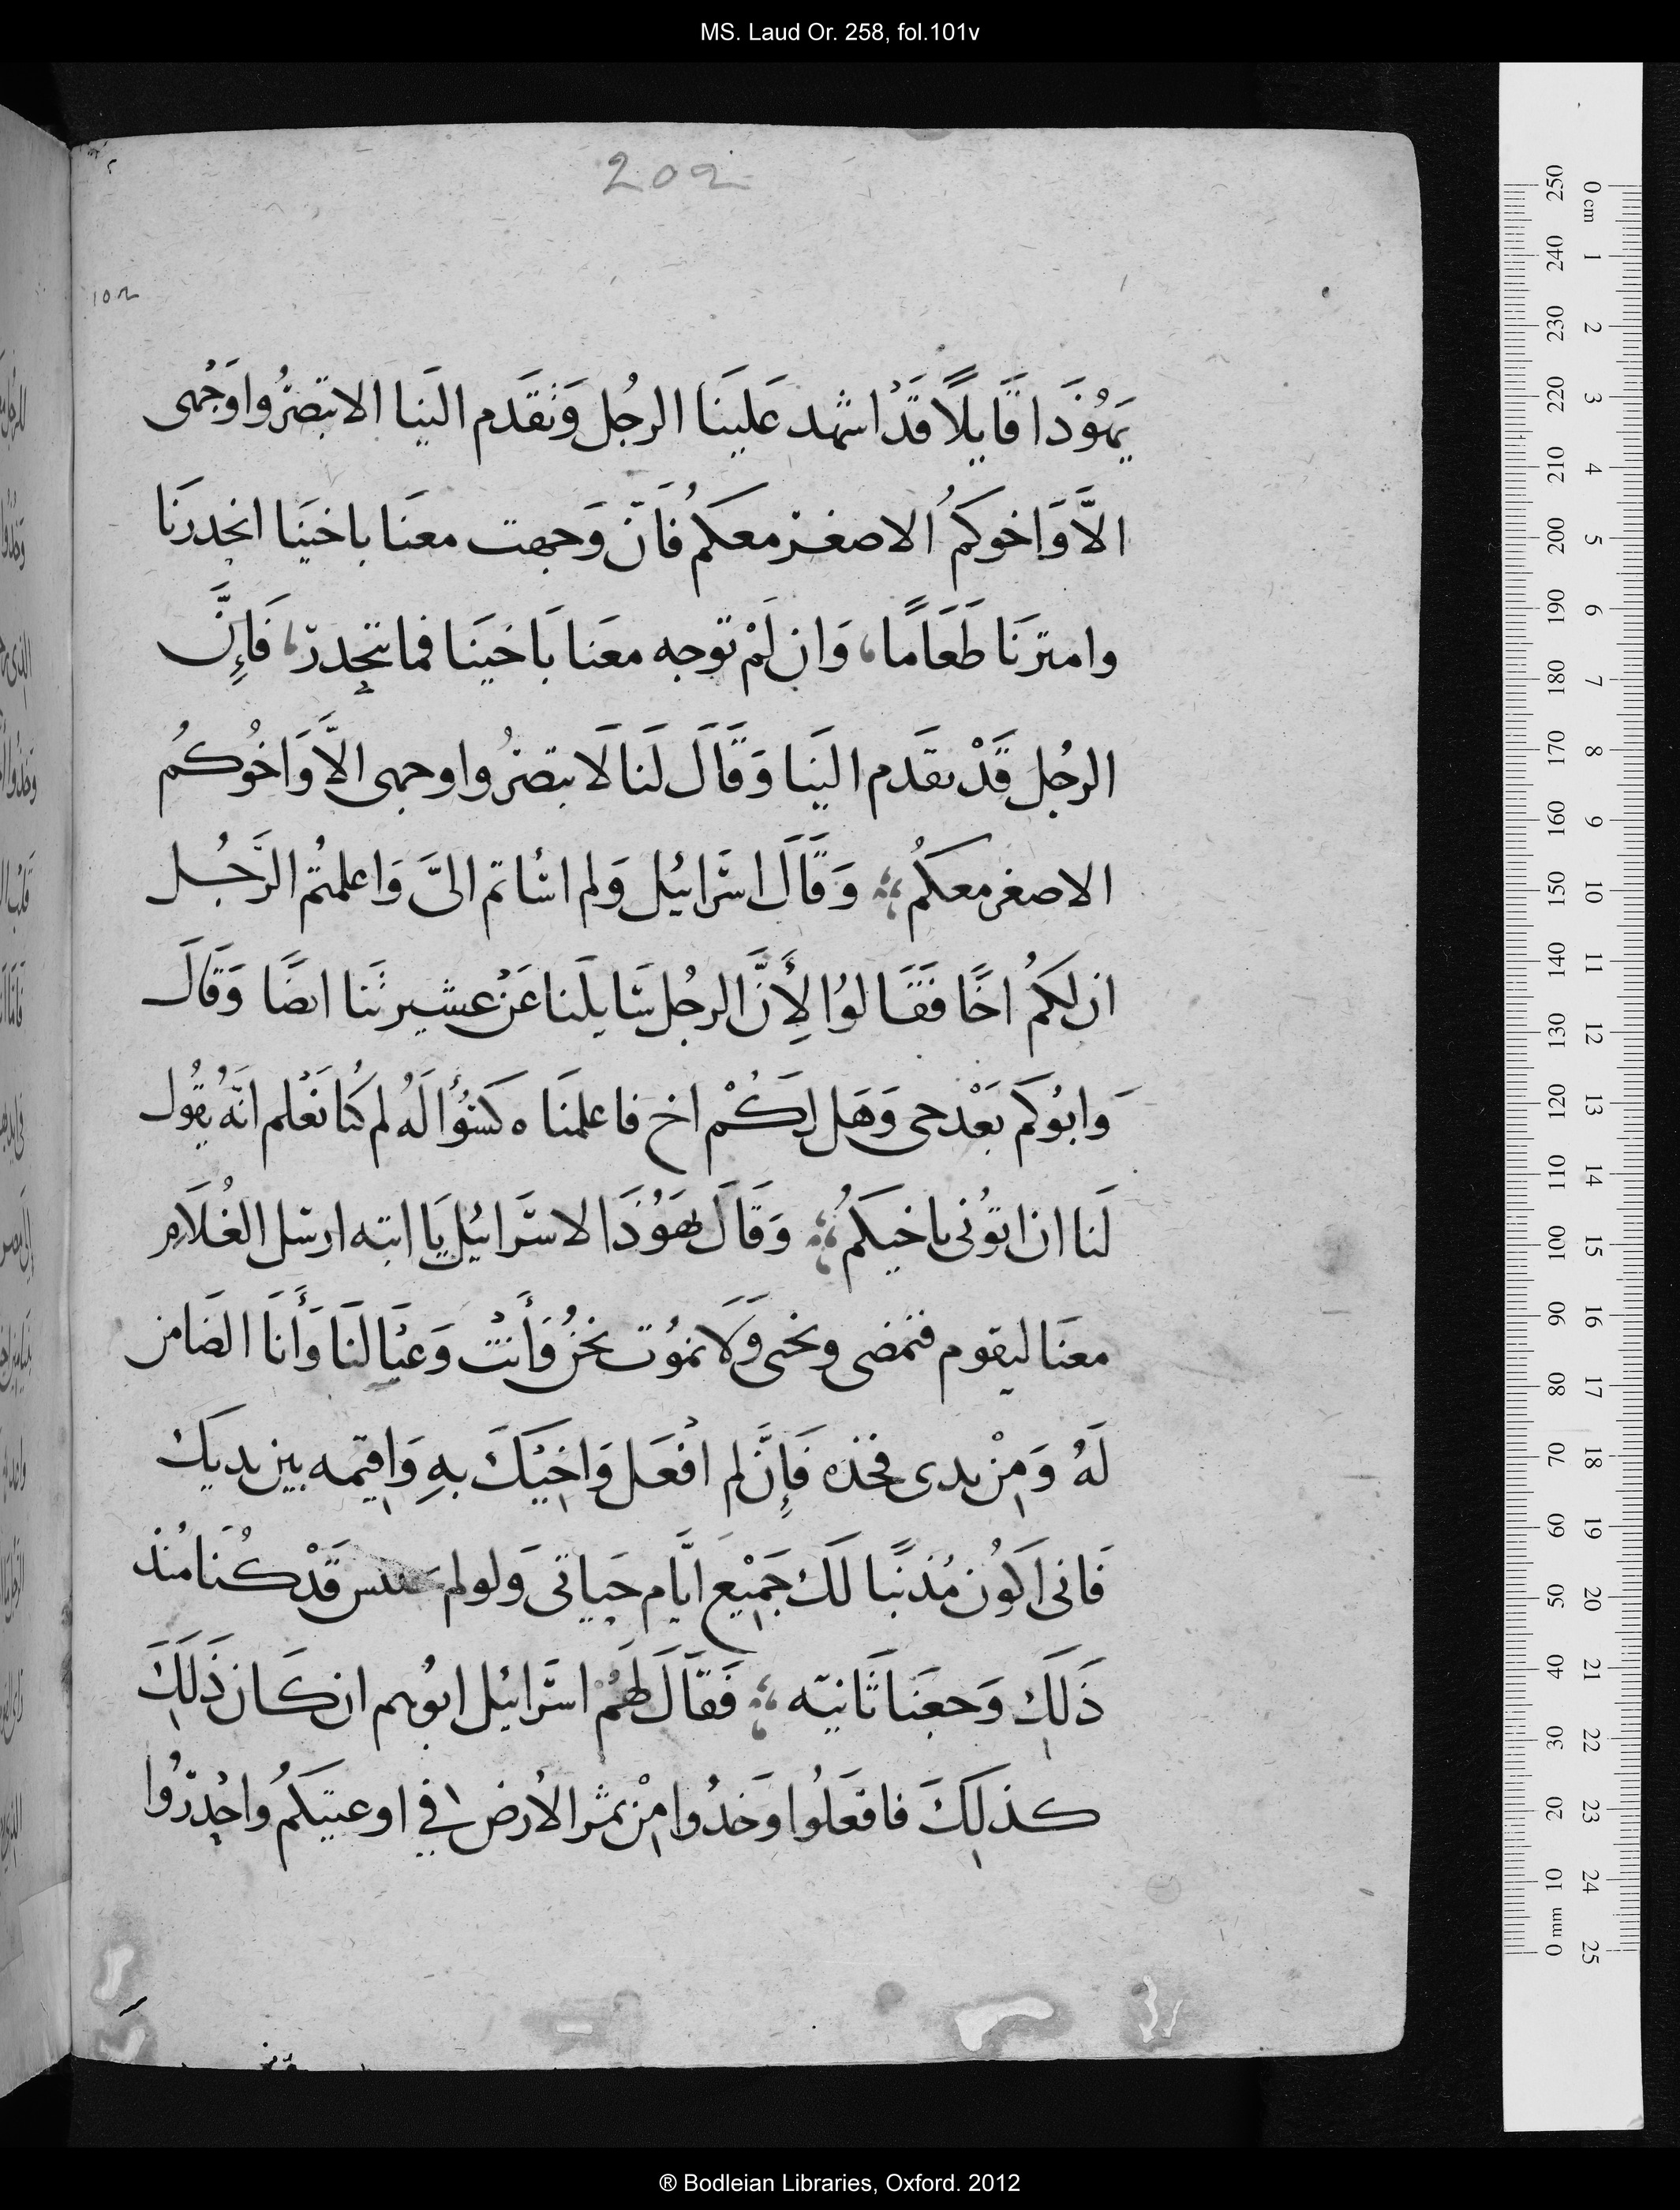 MS. Laud Or. 258, fol.101v
202
102
يَهُوذَا قَايِلًا قَدْ اشهد عَلَينَا الرجُل وَتقَدَم الَينَا الا تبصرُوا وَجْهى
الاَّ وَاخوكمُ الاصغر معكم فَانّ وَجهت معنَا باخينَا انحدرنَا
وامترنَا طَعَامًا، وَان لَمْ توجه معَنا بَاخينَا فما نتحدر، فَإِنَّ
الرجُل قَدْ تقَدم الينَا وَقَالَ لَنا لَا تبصرُوا وجهى الاَّ وَاخُوكُم
الاصغر معكمُ؞ وَقَالَ اسرَائيُل وَلم اسُاتم الىَّ وَاعلمتُم الرَّجُل
ان لكمُ اخًا فَقَالوُا لِأَنَّ الرجُل سَايلَنا عَنْ عشيرتَنا ايضَا وَقَالَ
وَابوُكم بَعْد حى وَهَل لِكَمْ اخ فاعلمنَاه كسَؤُالَهُ لم كُنا نَعْلم انَّهُ يقُول
لَنا ان اتوُنى باخيكمُ؞ وَقَالَ يَهوُذَا لاسرَائيُل يَا ابته ارسل الغُلَام
معنَا ليقوم فنمضى ونحيى وَلَا نموُت نحْنُ فَأَنتْ وَعيَالنَا وَأَنَا الضَامن
لَهُ وَمِنْ يدى فخذه فَإِنَّ لم افعَل وَاجيْكَ بهِ وَاقيمه بين يديكَ
فَانى اكوُن مُذنبًا لَك جَميْع ايَّام حيَاتى وَلولم قَدْ كُنَا مُنذ
ذَلَكِ وَرجعَنا ثَانيَه ؞ فَقَالَ لَهمُ اسرَائيُل ابوُهم ان كَان ذَلَكَ
كذلِكَ فافعَلُوا وَخدُوا مِنْ ثمر الأرض فِي اوعيتكمُ واحْدِرُوا
0 cm 1 2 3 4 5 6 7 8 9 10 11 12 13 14 15 16 17 18 19 20 21 22 23 24 25
250 240 230 220 210 200 190 180 170 160 150 140 130 120 110 100 90 80 70 60 50 40 30 20 10 0 mm
® Bodleian Libraries, Oxford. 2012